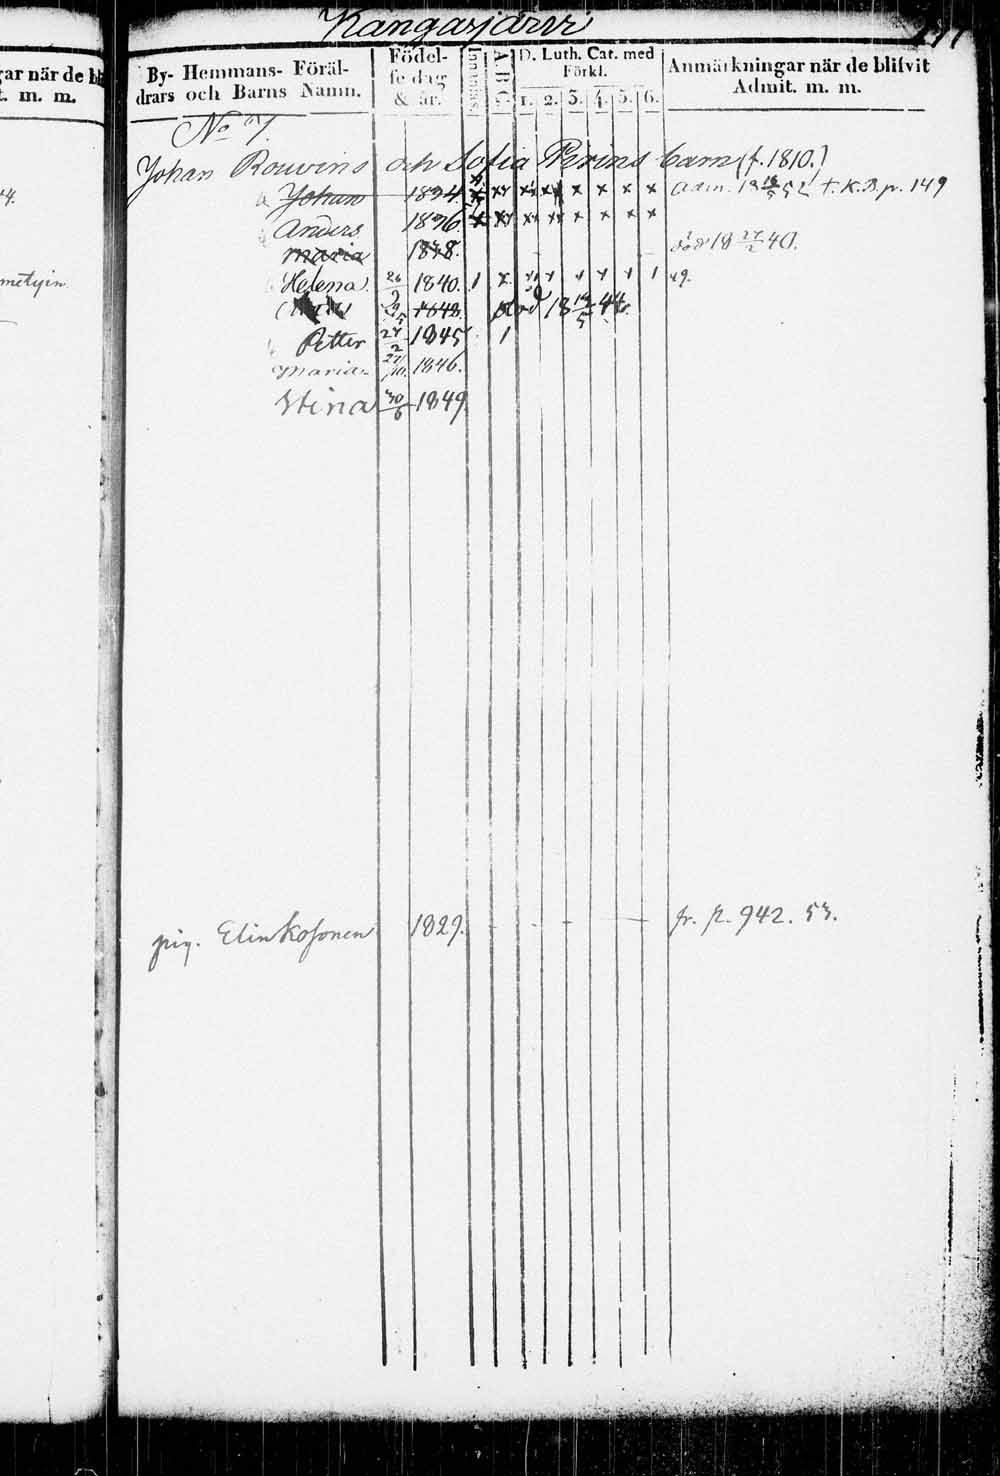 Kangasjärvi
gar när de bli
t. m. m.
By- Hemmans- Föräl-
drars och Barns Namn.
Födel-
se dag
& år.
Innanläs.
A B C
D. Luth. Cat. med
Förkl.
1. 2. 3. 4. 5. 6.
Anmärkningar när de blifvit
Admit. m. m.
No 7.
Johan Rouvins och Sofia Perins barn (f. 1810.)
Johan 1834 x x x x x x x x Adm. 18 52 t. K.B. p. 149
Anders 1836 x x x x x x x x
Maria 1838. död 18 27/2 40.
Helena 26 1840. 1
1843. död 18 44
Petter 27/2 1845 1
Maria 27/10 1846.
Stina 30/6 1849.
pig. Elin Kosonen 1829. fr. p. 942. 53.